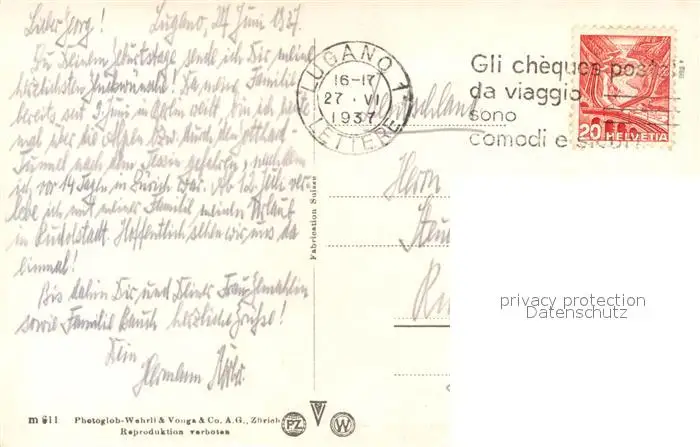 Lieber Georg! Lugano, 27. Juni 1937.
Zu Deinem Geburtstage sende ich Dir meine
herzlichsten Glückwünsche! Da meine Familie
bereits seit 3. Juni in weilt, bin ich
mal über die Alpen bzw. durch den Gotthard-
Tunnel nach dem gefahren, nachdem
ich vor 14 Tagen in Zürich war. Ab 12. Juli ver-
lebe ich mit meiner Familie meinen Urlaub
in Rudolstadt. Hoffentlich sehen wir uns da
einmal!
Bis dahin Dir und Deiner Frau Gemahlin
sowie Familie herzliche Grüße!
Dein
Hermann
LUGANO 1
16-17
27. VI
1937
LETTERE
Gli chèques post
da viaggio
sono
comodi e sicuri
20 HELVETIA
Herrn
Fabrication Suisse
privacy protection
Datenschutz
m 611 Photoglob-Wehrli & Vouga & Co. A.G., Zürich
Reproduktion verboten
PZ V W